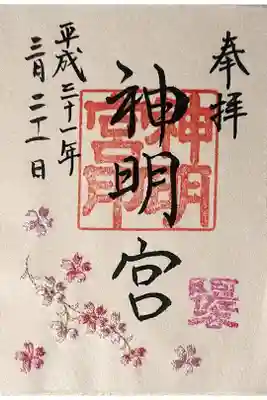 奉拝
神明宮
平成二十一年
三月二十一日